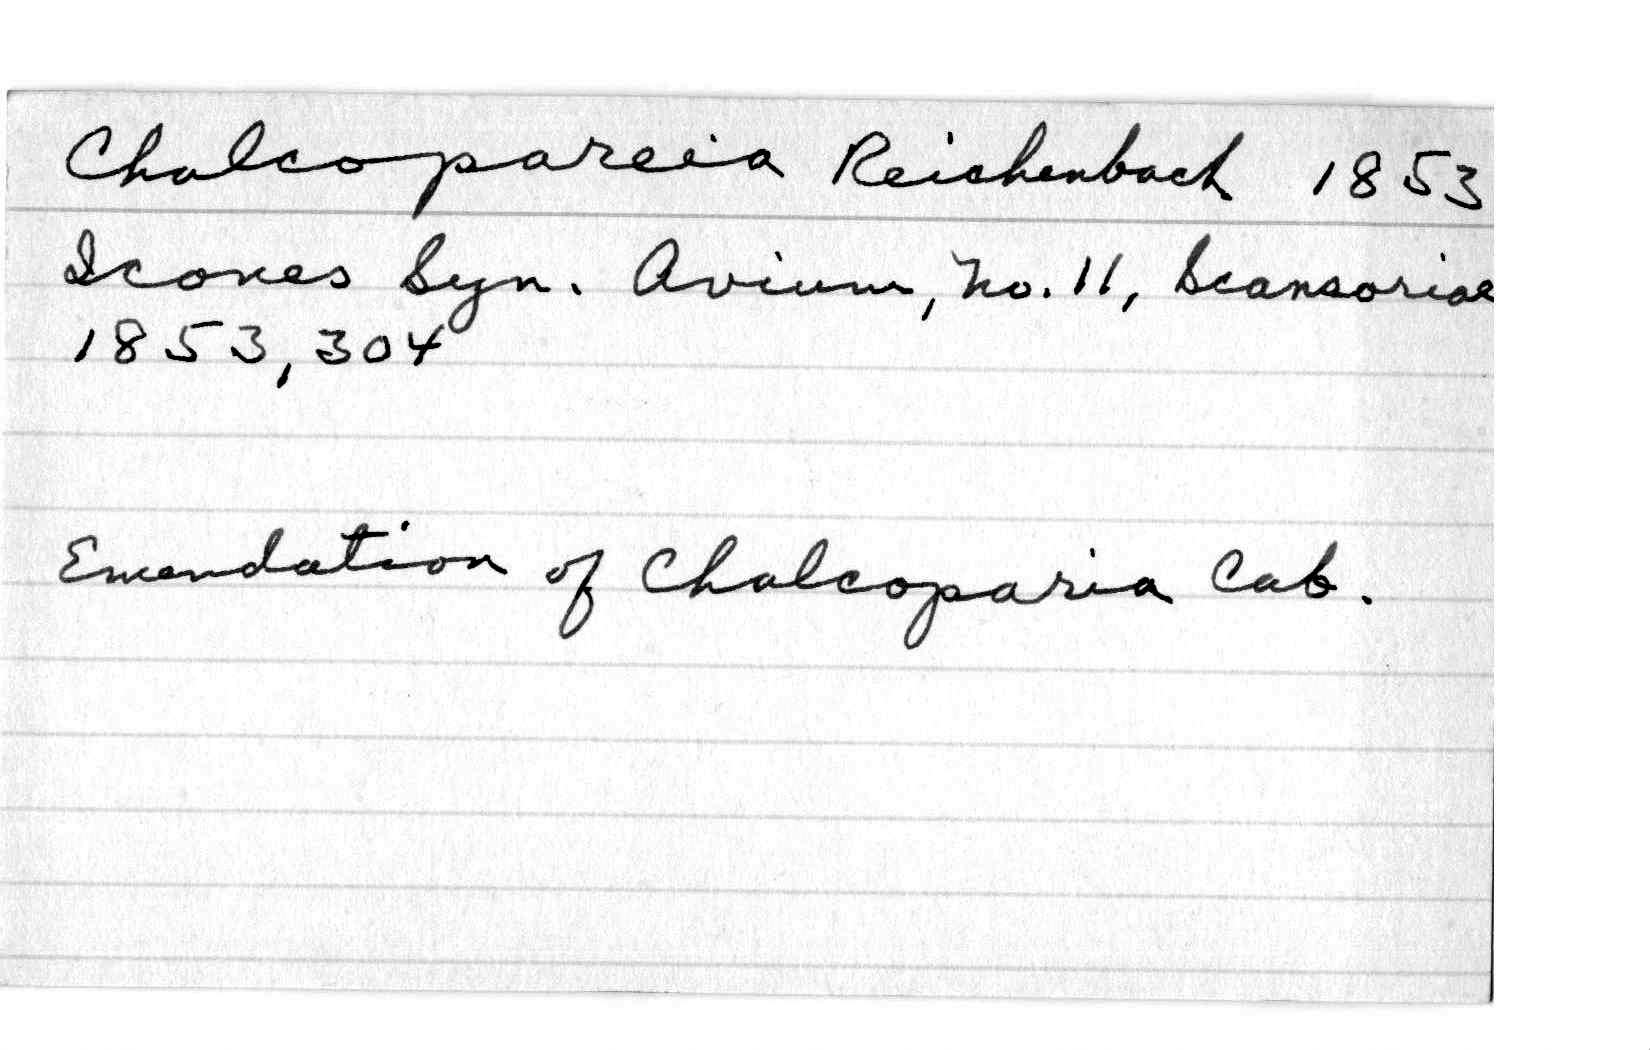 Chalcopareia Reichenbach 1853
Icones Syn. Avium, No. 11, Scansoriae
1853, 304
Emendation of Chalcoparia Cab.